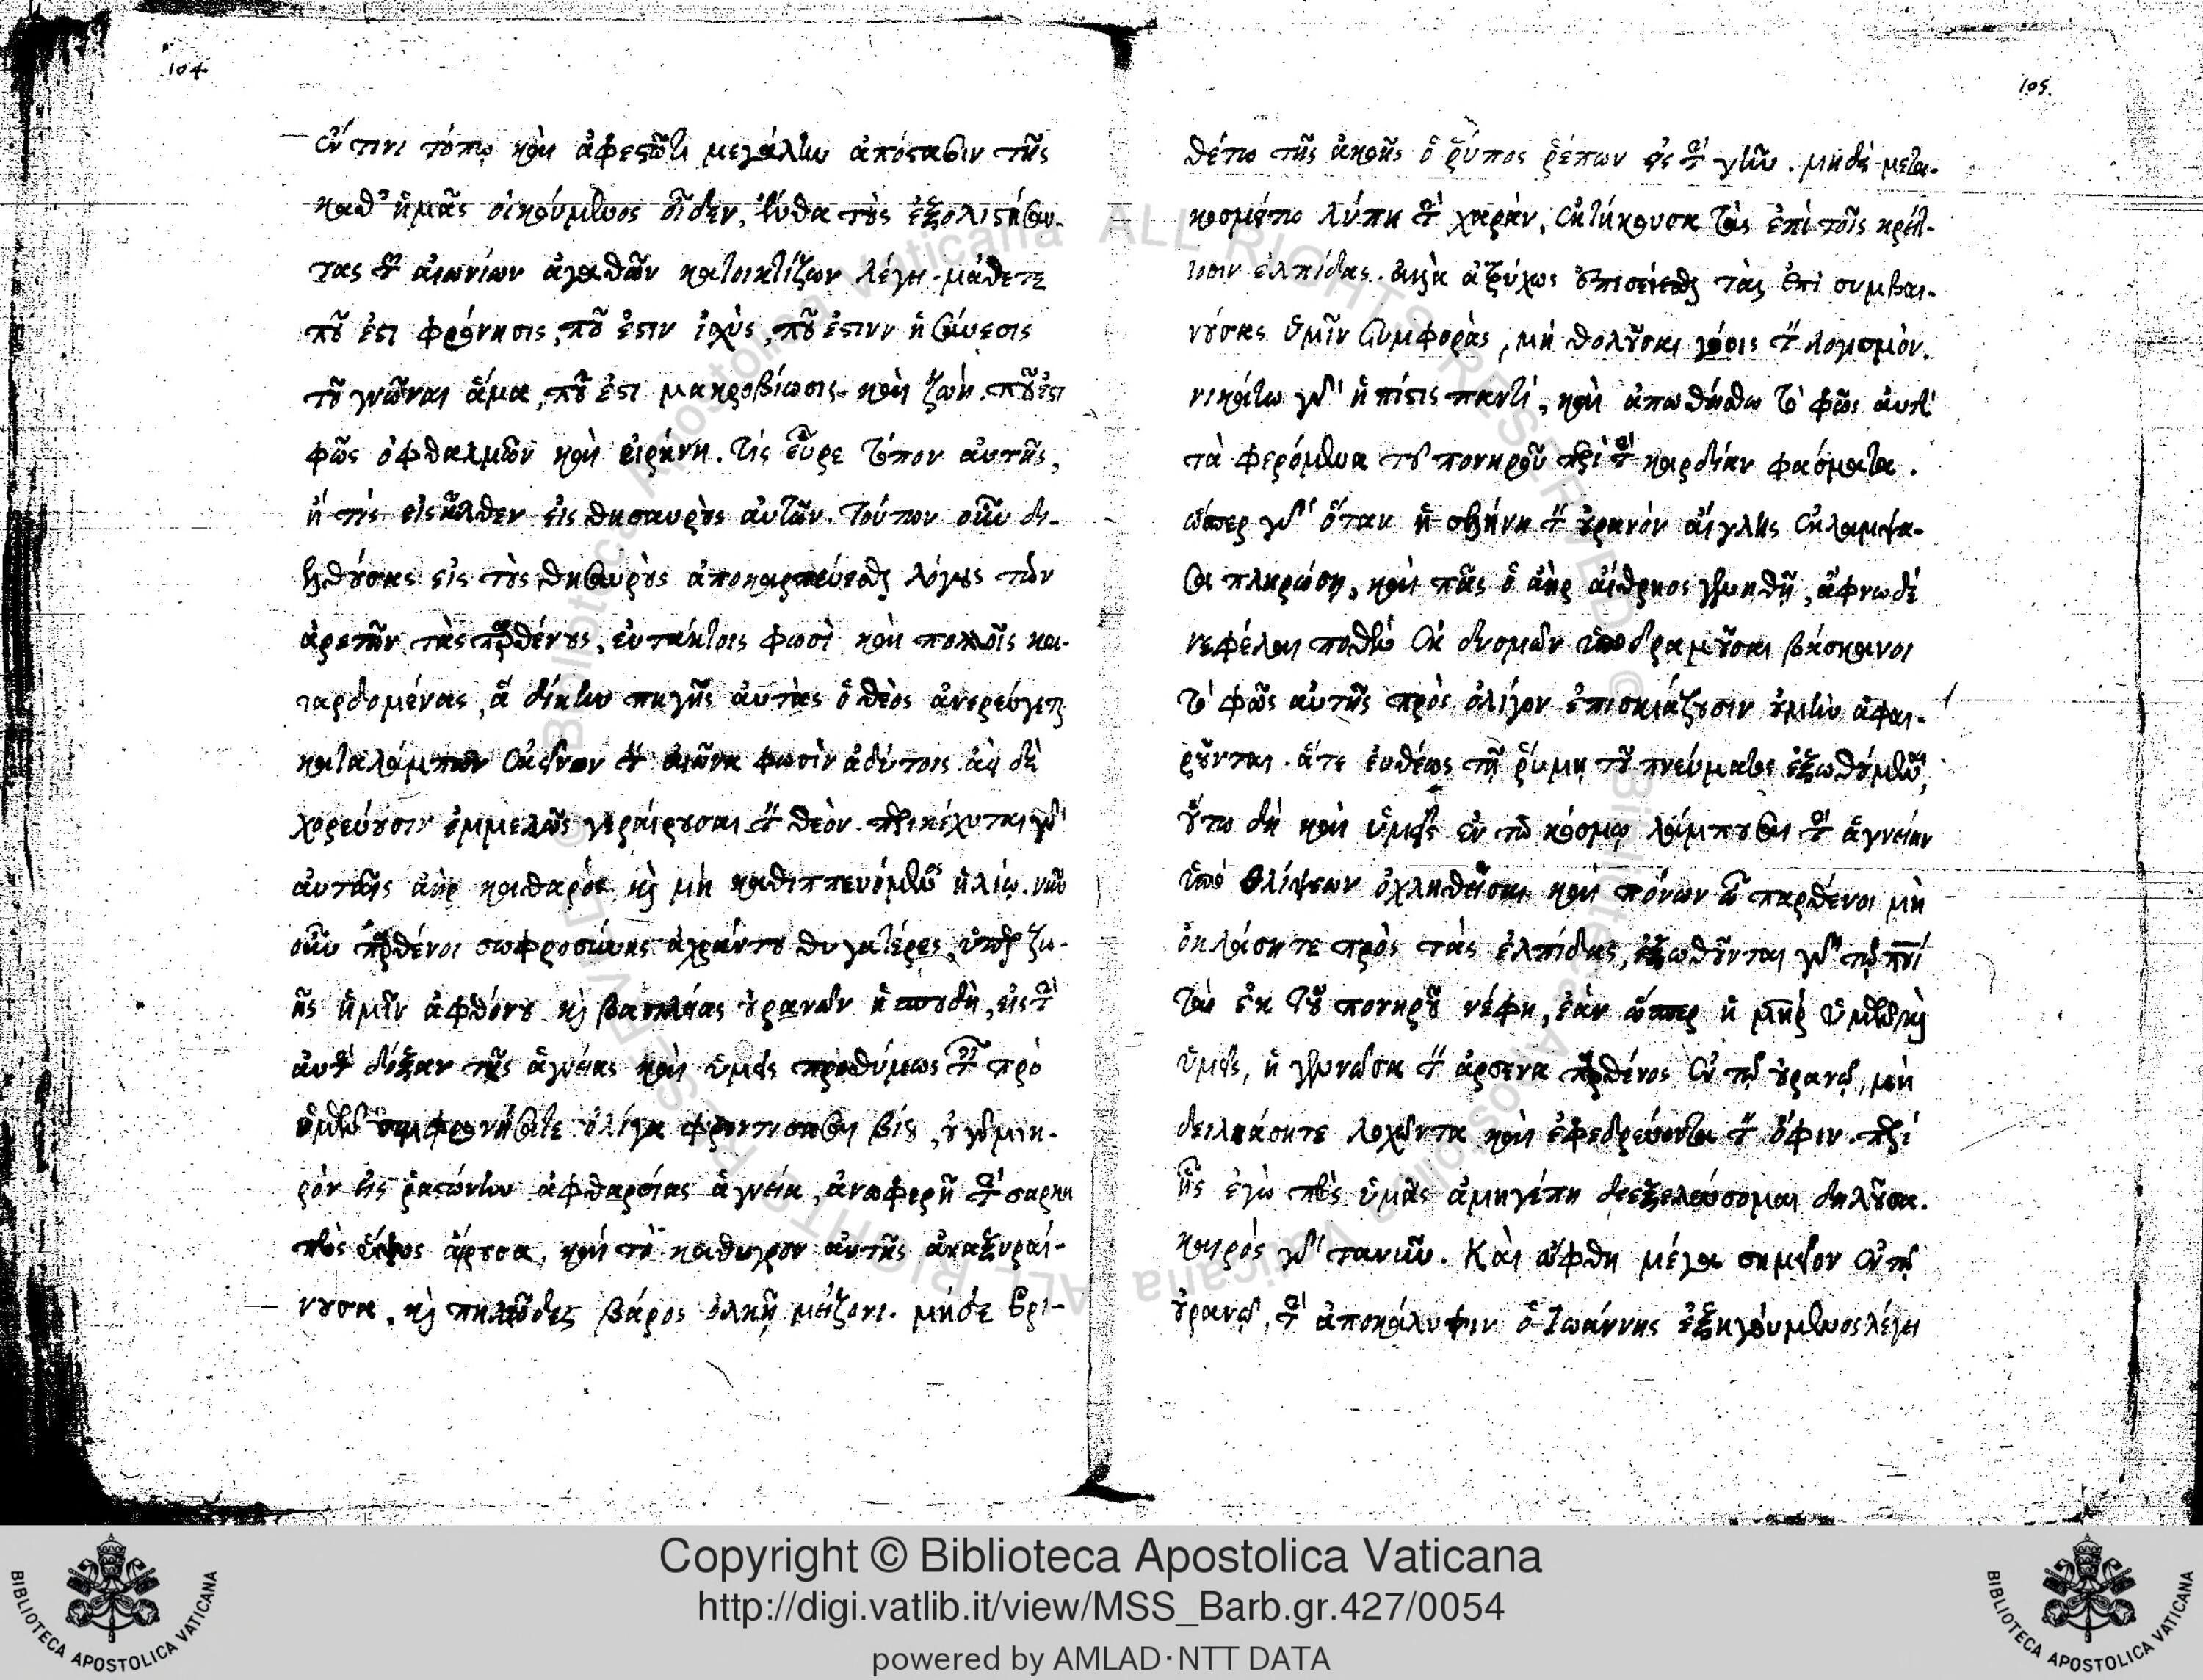 104
ἔν τινι τόπῳ καὶ ἀφεστῶτι μεγάλην ἀπόστασιν τῆς
καθ' ἡμᾶς οἰκουμένης οἶδεν, ἔνθα τοὺς ἐξολισθήσαν-
τας τῶν αἰωνίων ἀγαθῶν κατοικτίζων λέγει. μάθετε
ποῦ ἐστι φρόνησις, ποῦ ἐστιν ἰσχὺς, ποῦ ἐστιν ἡ σύνεσις
τοῦ γνῶναι ἅμα, ποῦ ἐστι μακροβίωσις καὶ ζωή. ποῦ ἐστι
φῶς ὀφθαλμῶν καὶ εἰρήνη. τίς εὗρε τόπον αὐτῆς,
ἢ τίς εἰσῆλθεν εἰς θησαυροὺς αὐτῶν. τούτων οὖν δι-
ελθούσας εἰς τοὺς θησαυροὺς ἀποκαρπεύεσθαι λόγος τῶν
ἀρετῶν τὰς παρθένους, εὐτάκτοις φωσὶ καὶ ποικίλοις κα-
ταρδομένας, ἃ δίκην πηγῆς αὐτὰς ὁ θεὸς ἀνερεύγεται
καταλάμπων τὸν αἰῶνα φωσὶν ἀδύτοις. αἱ δὲ
χορεύουσιν ἐμμελῶς γεραίρουσαι τὸν θεόν. περικέχυται γὰρ
αὐταῖς ἀὴρ καθαρὸς καὶ μὴ καθιππευόμενος ἡλίῳ. νῦν
οὖν παρθένοι σωφροσύνης ἀχράντου θυγατέρες, ὑπὲρ ζω-
ῆς ἡμῖν ἀφθόνου καὶ βασιλείας οὐρανῶν ἡ σπουδὴ, εἰς τὴν
αὐτὴν δόξαν τῆς ἁγνείας καὶ ὑμεῖς προθύμως τὴν πρὸ
ὑμῶν συμφρονήσατε ὀλίγα φροντίσασαι βίου, οὐ γὰρ μικ-
ρὸν εἰς ῥᾳστώνην ἀφθαρσίας ἁγνεία, ἀνωφερῆ τὴν σάρκα
πρὸς ὕψος ἄρασα, καὶ τὸ κάθυγρον αὐτῆς ἀναξηραί-
νουσα, καὶ πηλῶδες βάρος ὁλκῇ μείζονι. μήδε βρι-
105.
θέτω τῆς ἀκοῆς ὁ ῥύπος ῥέπων εἰς τὴν γῆν. μηδὲ μετα-
κοσμείτω λύπη τὴν χαρὰν, ἐκτήκουσα τὰς ἐπὶ τοῖς κρείτ-
τοσιν ἐλπίδας. ἀλλὰ ἀτρύχως ἀποσείεσθε τὰς ἐπὶ συμβαι-
νούσας ὑμῖν συμφορὰς, μὴ θολοῦσαι γόοις τὸν λογισμόν.
νικάτω γὰρ ἡ πίστις παντὶ, καὶ ἀπωθήσθω τὸ φῶς αὐτῆς
τὰ φερόμενα τοῦ πονηροῦ περὶ τὴν καρδίαν φάσματα.
ὥσπερ γὰρ ὅταν ἡ σελήνη τὸν οὐρανὸν αἴγλης ἐκλάμψα-
σα πληρώσῃ, καὶ πᾶς ὁ ἀὴρ αἴθριος γενηθῇ, ἄφνω δὲ
νεφέλαι ποθὲν ἐκ δυσμῶν ὑποδραμοῦσαι βάσκανοι
τὸ φῶς αὐτῆς πρὸς ὀλίγον ἐπισκιάζουσιν οὐ μὴν ἀφαι-
ροῦνται. ἅτε εὐθέως τῇ ῥύμῃ τοῦ πνεύματος ἐξωθούμεναι,
οὕτω δὴ καὶ ὑμεῖς ἐν τῷ κόσμῳ λάμπουσαι τὴν ἁγνείαν
ὑπὸ θλίψεων ὀχληθεῖσαι καὶ πόνων ὦ παρθένοι μὴ
ὀκλάσητε πρὸς τὰς ἐλπίδας, ἐξωθοῦνται γὰρ τῷ πνι
τὰ ἐκ τοῦ πονηροῦ νέφη, ἐὰν ὥσπερ ἡ μηρ ὑμῶν καὶ
ὑμεῖς, ἡ γεννῶσα τὸν ἄρσενα παρθένος ἐν τῷ οὐρανῷ, μὴ
δειλιάσητε λοχῶντα καὶ ἐφεδρεύοντα τὸν ὄφιν. περὶ
ἧς ἐγὼ πρὸς ὑμᾶς ἀμηγέπη διεξελεύσομαι δηλοῦσα.
καιρὸς γὰρ τανῦν. Καὶ ὤφθη μέγα σημεῖον ἐν τῷ
οὐρανῷ, τὴν ἀποκάλυψιν ὁ Ἰωάννης ἐξηγούμενος λέγει
Copyright © Biblioteca Apostolica Vaticana
http://digi.vatlib.it/view/MSS_Barb.gr.427/0054
powered by AMLAD·NTT DATA
BIBLIOTECA APOSTOLICA VATICANA
BIBLIOTECA APOSTOLICA VATICANA